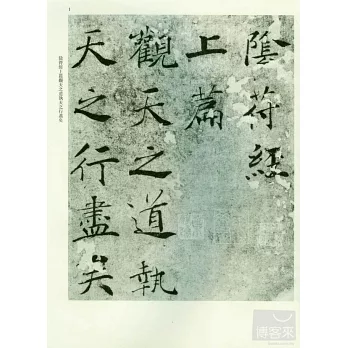 陰符經
上篇
觀天之道執
天之行盡矣
陰符經上篇觀天之道執天之行盡矣
博客來